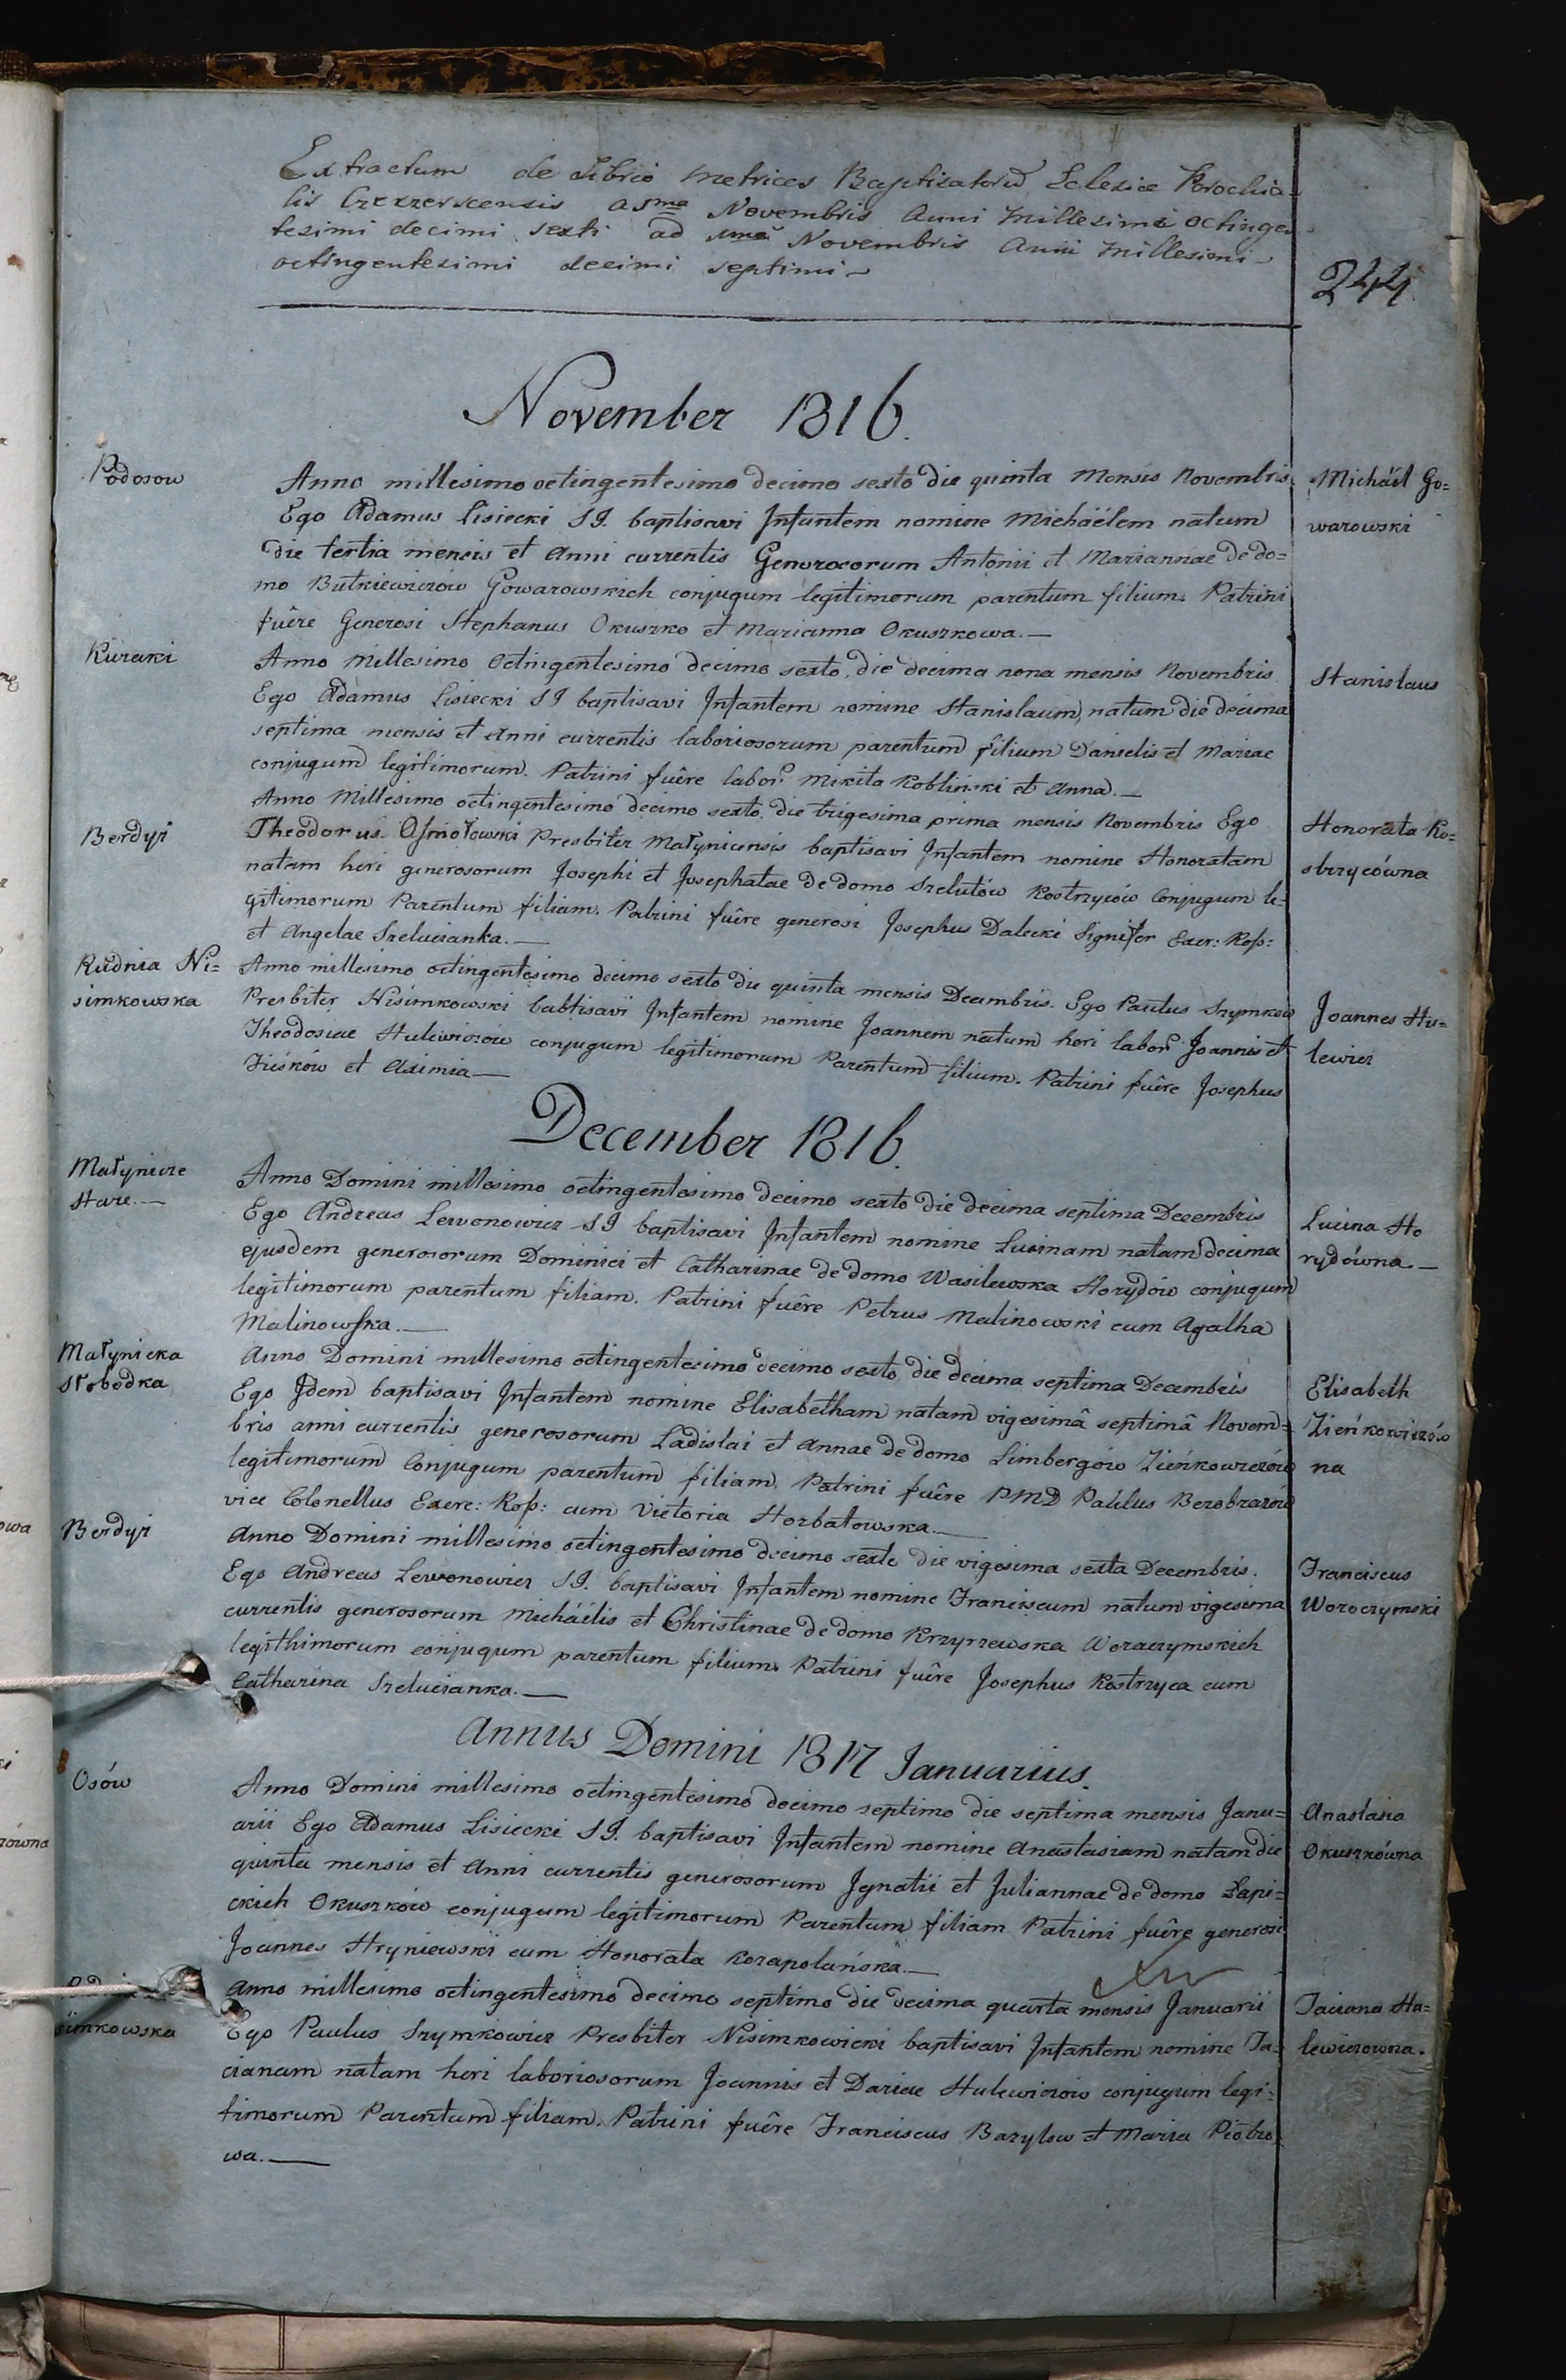 Extractum de Libris Metrices Baptisatorũ Eclesiae Parochia-
lis Czeczerscensis a 5ma Novembris Anni Millesimi octinge-
tesimi decimi sexti ad 1ma Novembris Anni Millesimi
octingentesimi decimi septimi-
244
November 1816.
Podosow
Anno millesimo octingentesimo decimo sexto die quinta Mensis Novembris
Ego Adamus Lisiecki S J. baptisavi Infantem nomine Michaëlem natum
die tertia mensis et Anni currentis Generosorum Antonii et Mariannae de do=
mo Butkiewiczów Gowarowskich conjugum legitimorum parentum filium. Patrini
fuêre Generosi Stephanus Okuszko et Marianna Okuszkowa.—
Michäel Go=
warowski
Kuraki
Anno Millesimo Octingentesimo decimo sexto, die decima nona mensis Novembris
Ego Adamus Lisiecki S J baptisavi Infantem nomine Stanislaum, natum die decima
septima mensis et Anni currentis laboriosorum parentum filium Danielis et Mariae
conjugum legitimorum. Patrini fuêre labor: Mikita Kobliński et Anna.—
Stanislaus
Berdyż
Anno Millesimo octingentesimo decimo sexto, die trigesima prima mensis Novembris Ego
Theodorus Osmołowski Presbiter Małynicensis baptisavi Infantem nomine Honoratam
natam heri generosorum Josephi et Josephatae de domo Szelutów Kostrzyców Conjugum le=
gitimorum Parentum filiam. Patrini fuêre generosi Josephus Dalecki Signifer Exer: Ross:
et Angelae Szelucianka.—
Honorata Ko=
strzycówna
Rudnia Ni=
simkowska
Anno millesimo octingentesimo decimo sexto die quinta mensis Decembris. Ego Paulus Szymkow
Presbiter Nisimkowski babtisavii Infantem nomine Joannem natum heri labor: Joannis et
Theodosiae Hulewiczów conjugum legitimorum Parentum filium. Patrini fuêre Josephus
Zieńków et Aximia—
Joannes Hu=
lewicz
December 1816.
Małynicze
Stare.—
Anno Domini millesimo octingentesimo decimo sexto die decima septima Decembris
Ego Andreas Lewonowicz S J baptisavi Infantem nomine Lucinam natam decima
ejusdem generosorum Dominici et Catharinae de domo Wasilewska Horydów conjugum
legitimorum parentum filiam. Patrini fuêre Petrus Malinowski cum Agatha
Malinowska.—
Lucina Ho
rydówna.—
Małynicka
Słobodka
Anno Domini millesimo octingentesimo decimo sexto, die decima septima Decembris
Ego Idem baptisavi Infantem nomine Elisabetham natam vigesimâ septimâ Novem=
bris anni currentis generosorum Ladislai et Annae de domo Limbergów Zieńkowiczów
legitimorum Conjugum parentum filiam. Patrini fuêre PMD Paulus Bezobrazów
vice Colonellus Exerc: Ross: cum Victoria Horbatowska.—
Elisabeth
Zieńkowiczów
na
Berdyż
Anno Domini millesimo octingentesimo decimo sexto die vigesima sexta Decembris.
Ego Andreas Lewonowicz S J. baptisavi Infantem nomine Franciscum natum vigesima
currentis generosorum Michäelis et Christinae de domo Krzyrzewska Woroczymskich
legithimorum conjugum parentum filium. Patrini fuêre Josephus Kostrzyca cum
Catharina Szelucianka.—
Franciscus
Woroczymski
Annus Domini 1817 Januarius.
Osów
Anno Domini millesimo octingentesimo decimo septimo die septima mensis Janu=
arii Ego Adamus Lisiecki S J. baptisavi Infantem nomine Anastasiam natam die
quinta mensis et Anni currentis generosorum Ignatii et Juliannae de domo Łapi=
ckich Okuszków conjugum legitimorum Parentum filiam Patrini fuêre generosi
Joannes Hryniewski cum Honorata Korapolańska.—
Anastasia
Okuszkówna
simkowska
Anno millesimo octingentesimo decimo septimo die decima quarta mensis Januarii
Ego Paulus Szymkowicz Presbiter Nisimkowicki baptisavi Infantem nomine Ta=
cianam natam heri laboriosorum Joannis et Dariae Hulewiczów conjugum legi=
timorum Parentum filiam. Patrini fuêre Franciscus Bazylow et Maria Piotro
wa.—
Taciana Hu=
lewiczowna.